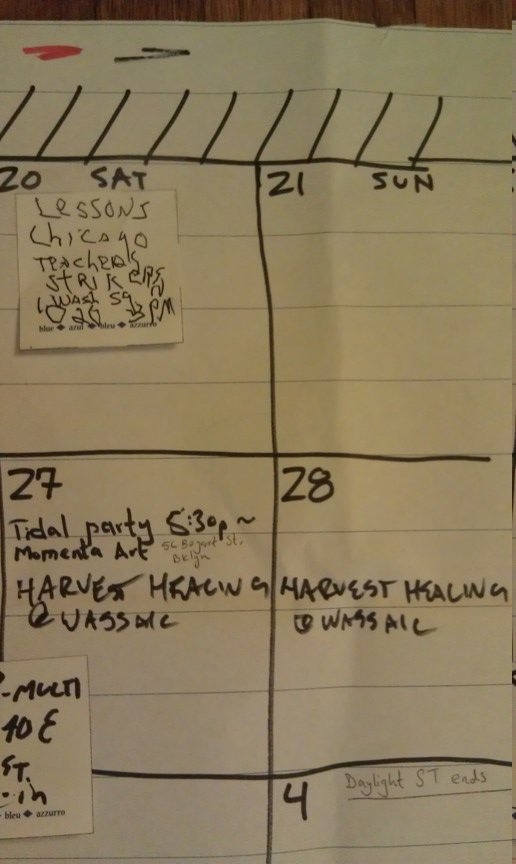 20 SAT
21 SUN
LESSONS
Chicago
TEACHERS
STRIKERS
WASH SQ
10 20 3PM
blue ◆ azul ◆ bleu ◆ azzurro
27
28
Tidal party 5:30p ~
Momenta Art 56 Bogart St,
Bklyn
HARVEST HEALING
@ WASSAIC
HARVEST HEALING
@ WASSAIC
-MULTI
40 E
ST.
bleu ◆ azzurro
4
Daylight ST ends